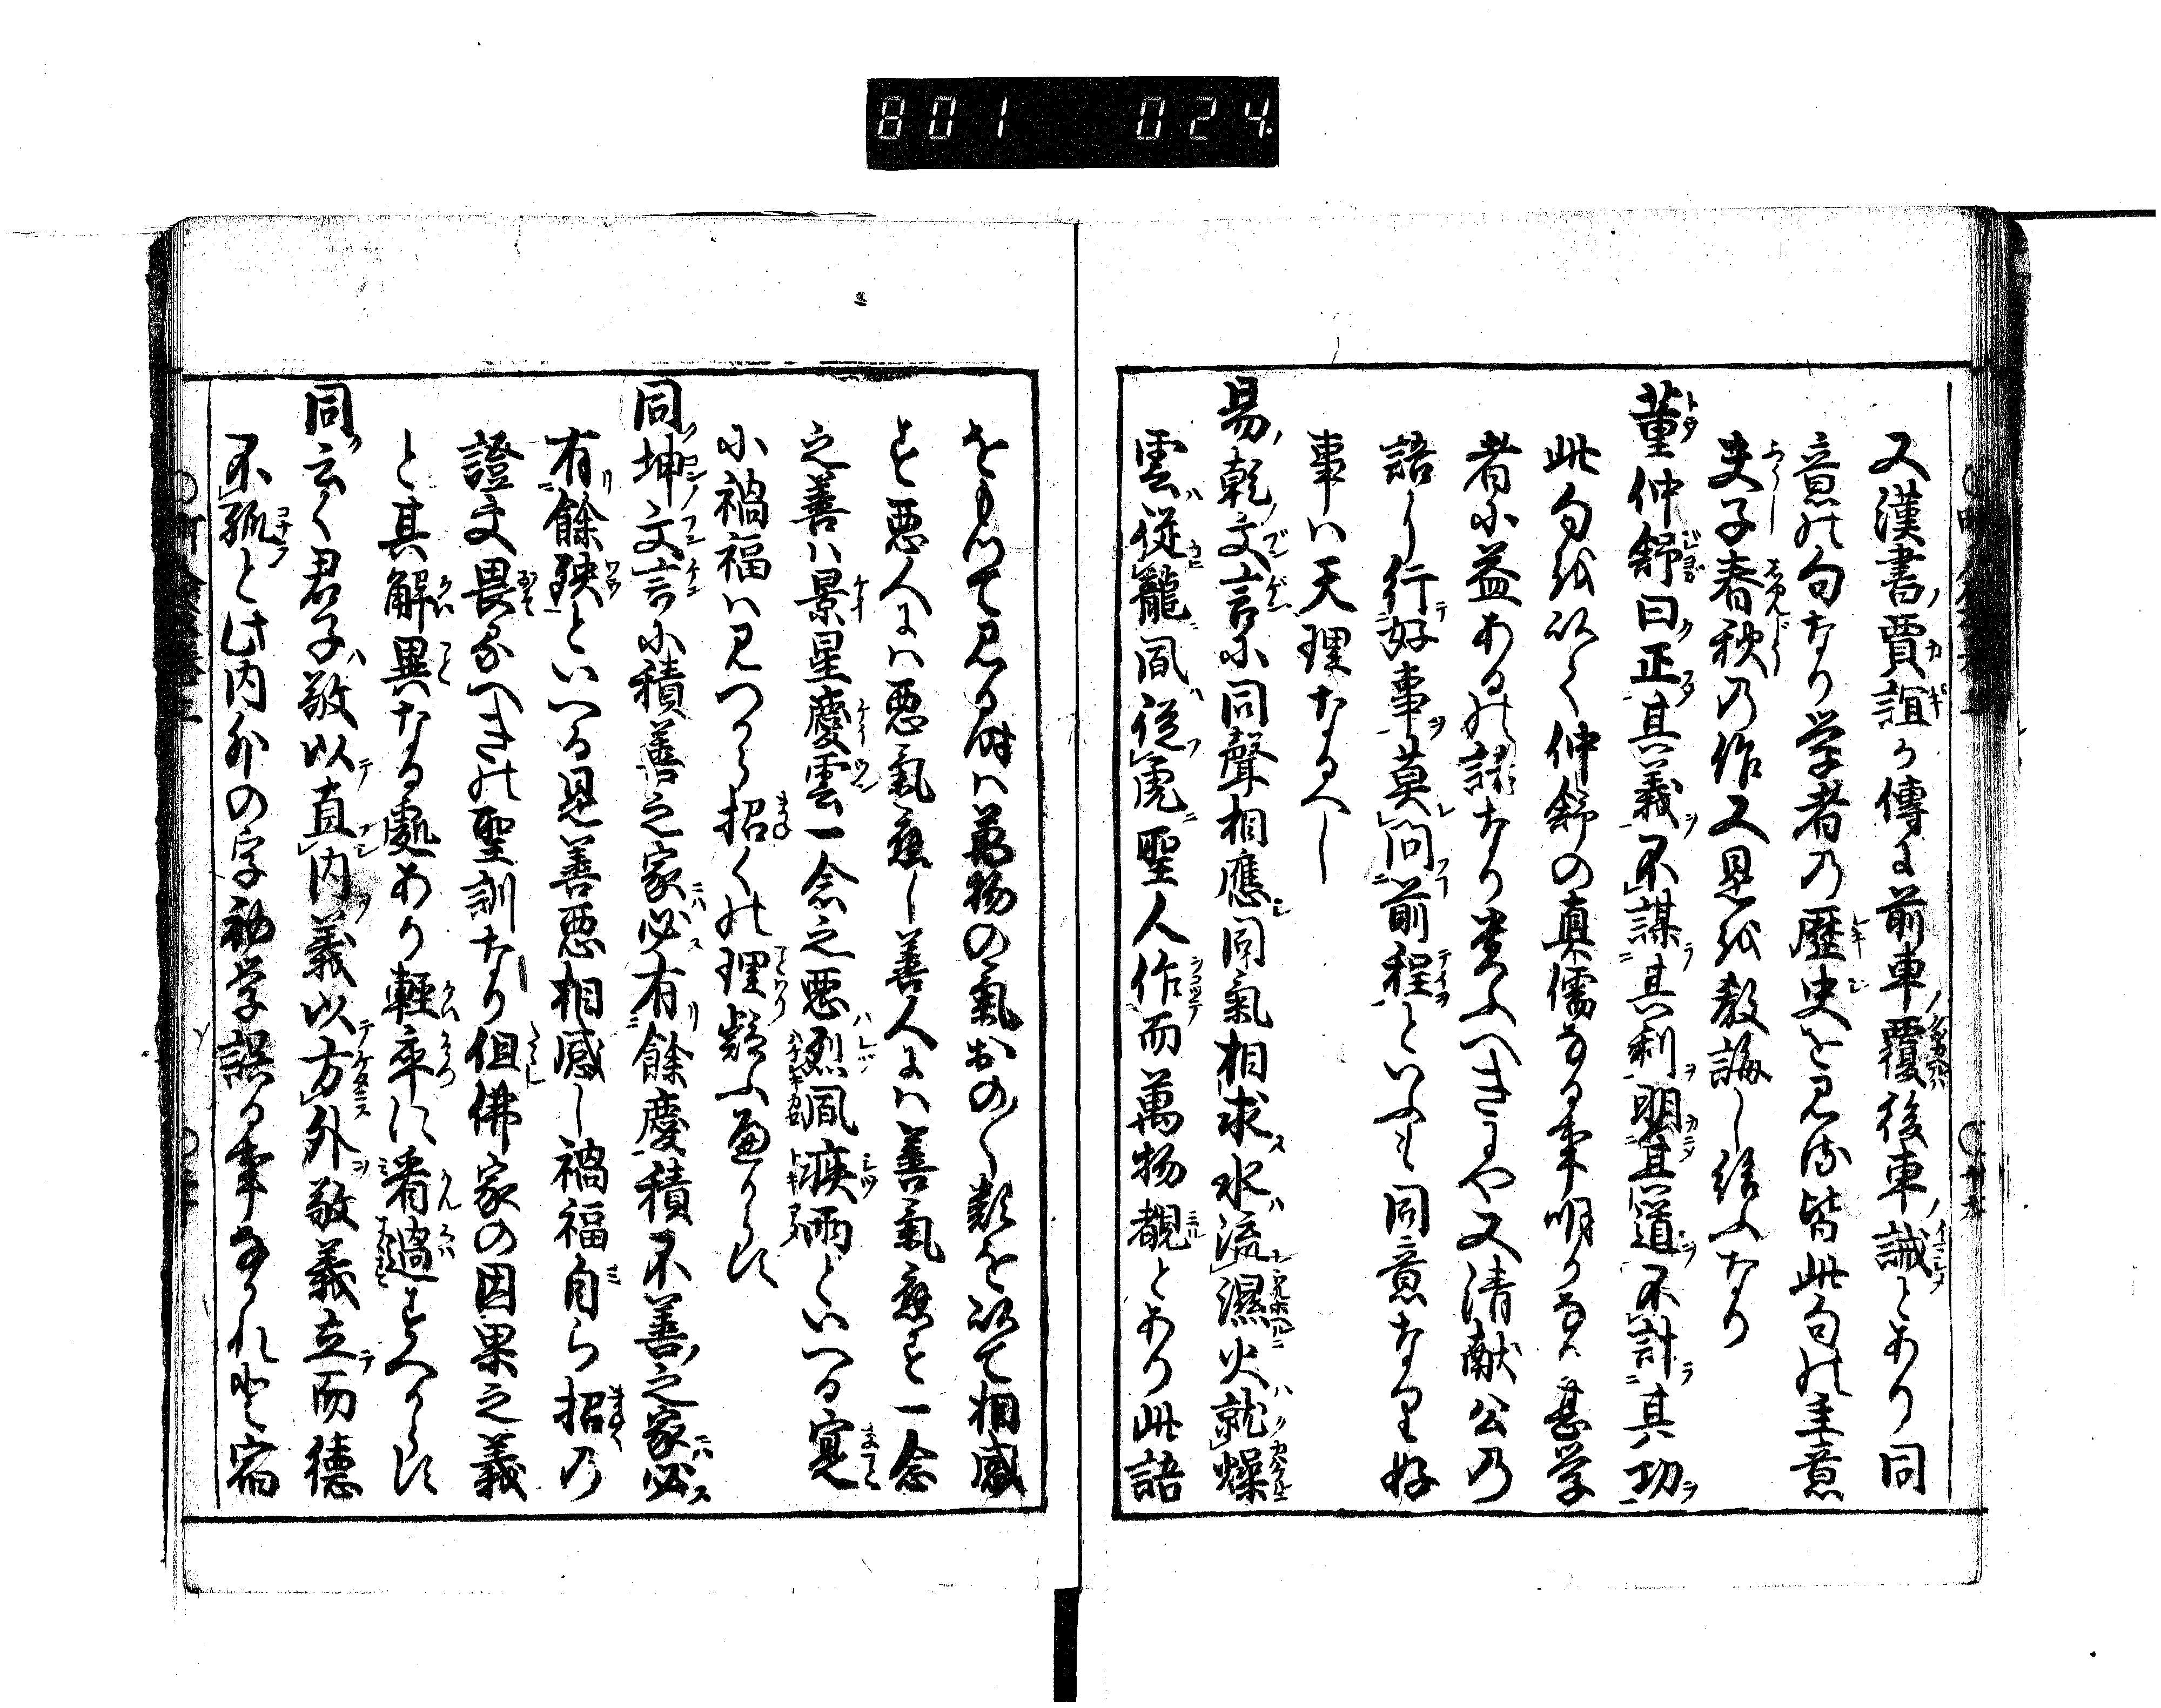 801 024.
又漢書賈誼か傳に前車覆後車誡とあり同
意の句なり学者の歴史を見る皆此句の主意
夫子春秋の作又是を教誨し給ふなり
董仲舒曰正其義不謀其利明其道不計其功
此句を以て仲舒の真儒なる事明かなり甚学
者に益あるの語なり貴ふへきにや又清献公の
語に行好事莫問前程といふも同意なり好
事は天理なるへし
易乾文言に同聲相應同氣相求水流濕火就燥
雲從龍風從虎聖人作而萬物覩とあり此語
をもつて見る時は萬物の氣おの〱類を以て相感
す悪人には悪氣應し善人には善氣應す一念
之善は景星慶雲一念之悪烈風疾雨といへる寔
に禍福は見つから招くの理疑ふ
同坤文言に積善之家必有餘慶積不善之家必
有餘殃といへる是善悪相感し禍福自ら招の
證文畏るへきの聖訓なり但佛家の因果之義
と其解異なる處あり輕卒に看過すへからす
同云く君子敬以直内義以方外敬義立而德
不孤と此内外の字初学誤る事なかれ